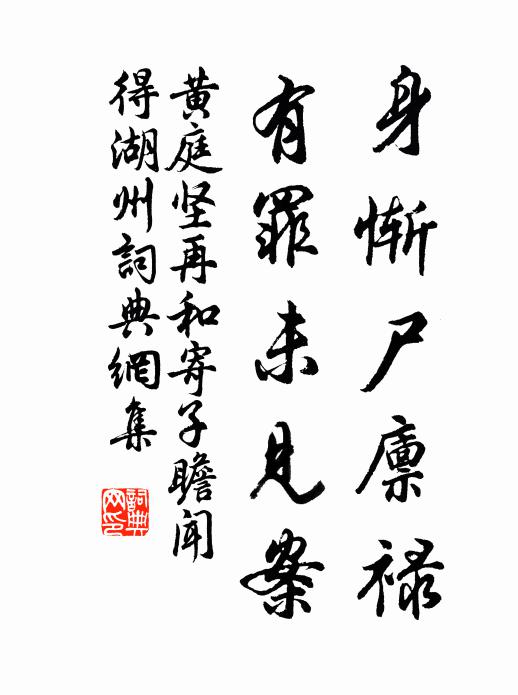 身慚尸廪禄
有罪未見案
黄庭坚再和寄子瞻聞
得湖州詞典網集
詞典网印